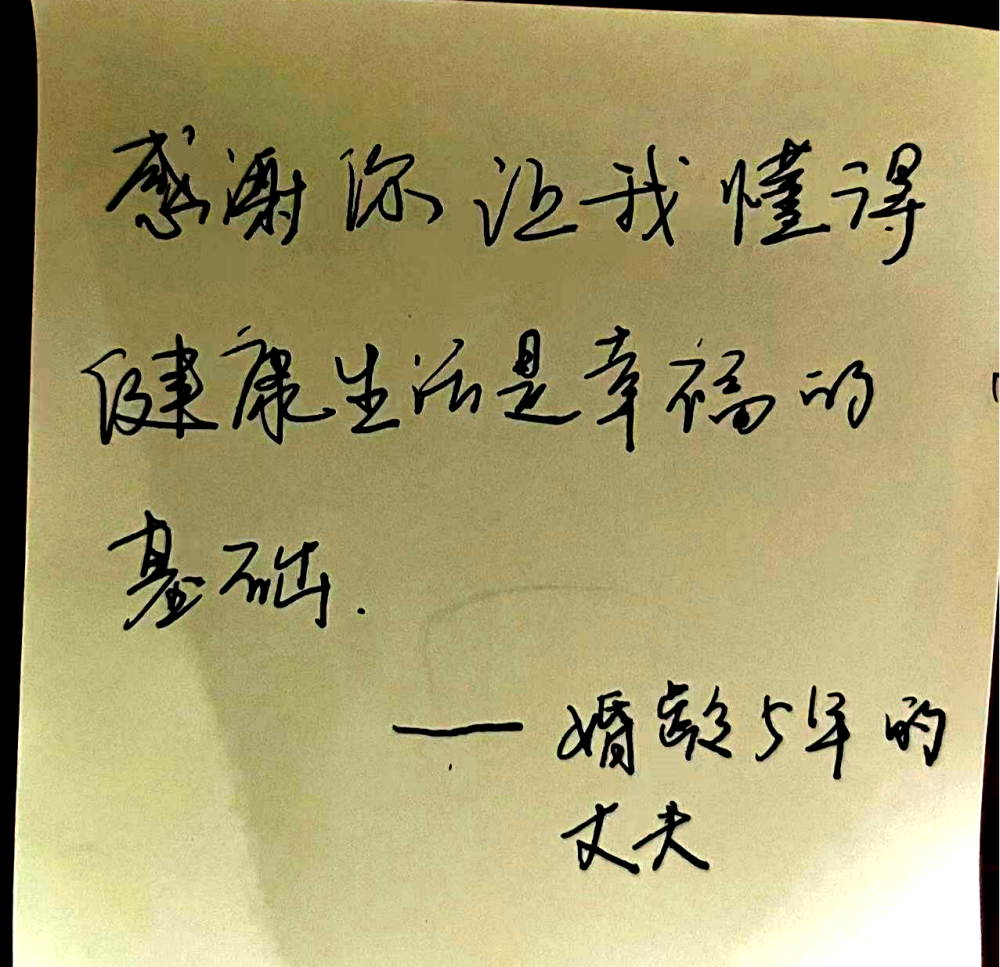 感谢你让我懂得
健康生活是幸福的
基础.
——婚龄5年的
丈夫